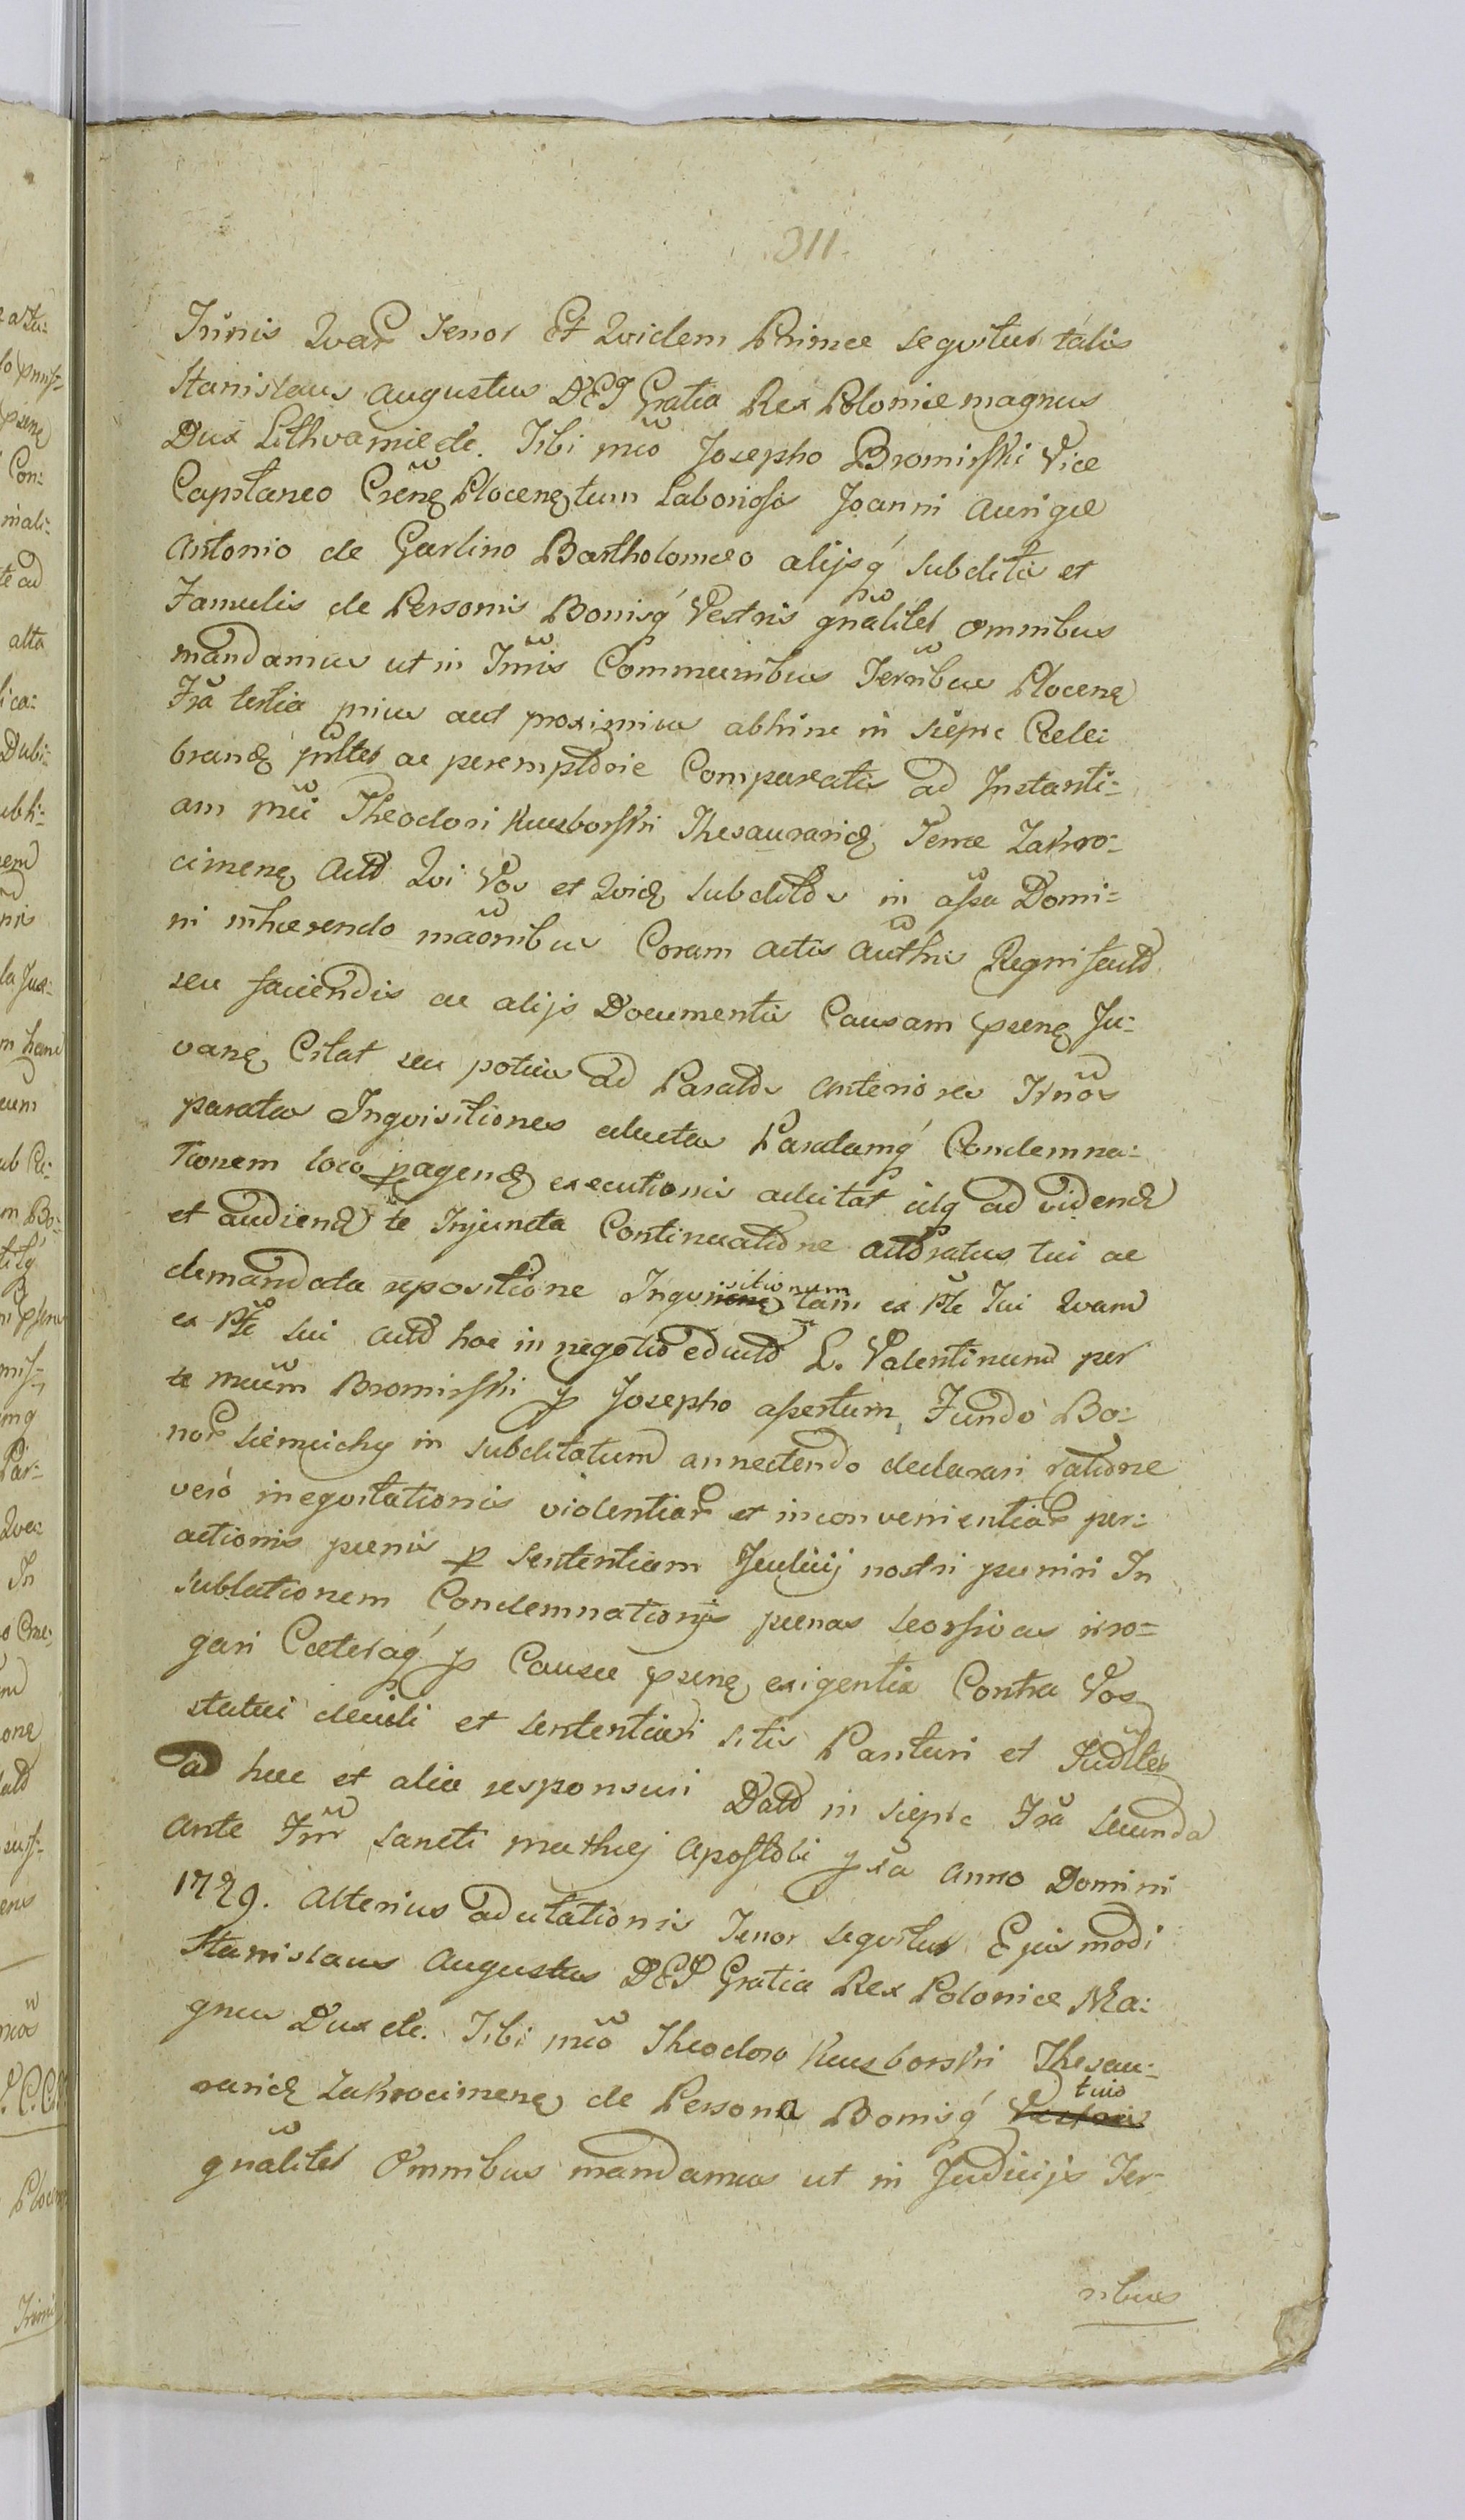 311.
Trinis Quar Tenor Et Quidem Primæ sequitur talis
Stanislaus Augustus DEI Gratia Rex Poloniæ magnus
Dux Lithvaniæ etc. Tibi mco Josepho Bromirski Vice
Capitaneo Crenę Plocenę tum Laboriosis Joanni aurigæ
Antonio de Garlino Bartholomeo alijsq́ subditis et
Famulis de Personis Bonisq́ Vestris gnaliter omnibus
mandamus ut in Tmis Communibus Terribus Plocenę
Fra tertia prius aut proximius abhinc in Sierpc Cele:
brandę prltes ac peremptorie Compareatis ad Instanti:
am mci Theodori Kuczborski Thesauraridę Terræ Zakro:
cimenę Actd Qui Vos et Quidę subditos in assa Domi:
ni inhærendo maonibus Coram actis authis Regni factd
seu faciendis ac alijs Documentis Causam psenę Ju:
vanę Citat seu potius ad Paratos Anteriores Trnos
paratas Inquisitiones eductas Paratamq́ Condemna:
tionem loco pagendę executionis adcitat itq ad videndę
et audiendę te Injuncta Continuatione actoratus tui ac
demandata repositione Inquisitionum tam ex Pte Tui Quam
ex Pte sui Actd hoc in negotio eductd L. Valentinum per
te mcum Bromirski p Josepho assertum, Fundo Bo:
nor Siemichy in subditatum annectendo declarari ratione
vero inequitationis violentiar et inconvenientiar per:
actionis pænis p Sententiam Judicij nostri puniri In
sublationem Condemnationis pænas seorsivas irro:
gari Cæteraq́ p Causæ psenę exigentia Contra Vos
statui decidi et sententiari sitis Parituri et Judlter
ad hæc et alia responsuri Datd in Sierpc Fra secunda
Ante Fm Sancti mathæj Apostoli pxa Anno Domini
1789. Alterius adcitationis Tenor sequitur Ejusmodi
Stanislaus Augustus DEI Gratia Rex Poloniæ Ma:
gnus Dux etc. Tibi mco Theodoro Kuczborski Thesau:
raridę Zakrocimenę de Persona Bonisq́ tuis
gnaliter Omnibus mandamus ut in Judicijs Ter-
ribus